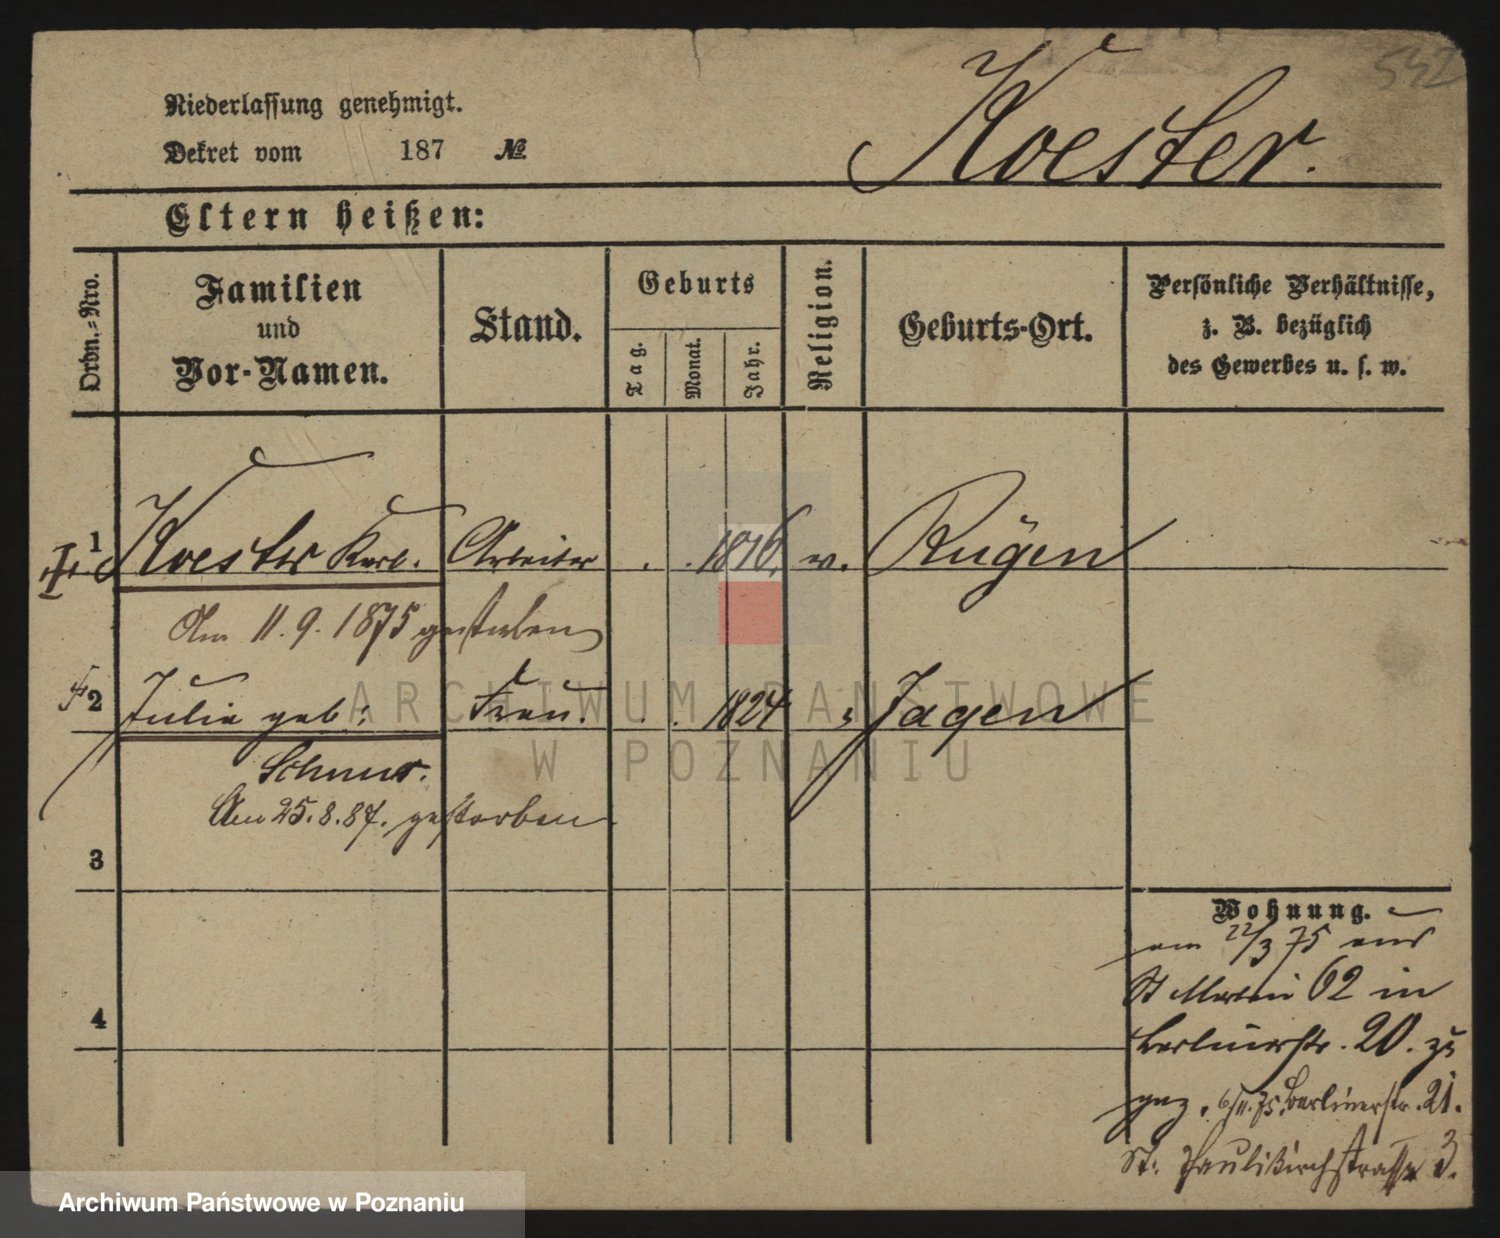 532
Niederlassung genehmigt.
Koester.
Dekret vom 187 №
Eltern heißen:
Ordn.=Nro.
Familien
und
Vor-Namen.
Stand.
Geburts
Tag.
Monat.
Jahr.
Religion.
Geburts-Ort.
Persönliche Verhältnisse,
z. B. bezüglich
des Gewerbes u. s. w.
1 Koester Karl. Arbeiter . . 1816. ev. Rügen
Am 11. 9. 1875 gestorben
2 Julie geb: Frau. . . 1824 Jagen
Am 25. 8. 87. gestorben.
3
4
Wohnung.
am 22/3 75 aus
St Martin 62 in
Berlinerstr. 20. zu
gez. 6/11. 75. Berlinerstr. 21.
St: Paulikirchstrasse 3.
ARCHIWUM PAŃSTWOWE
W POZNANIU
Archiwum Państwowe w Poznaniu